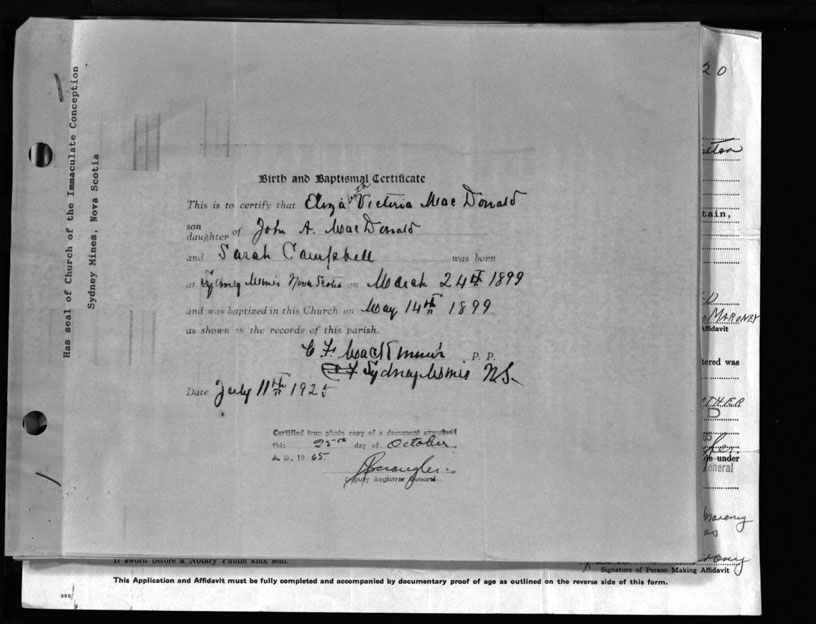 Has seal of Church of the Immaculate Conception
Sydney Mines, Nova Scotia
Birth and Baptismal Certificate
This is to certify that Elizabeth Victoria MacDonald
son
daughter of John A. MacDonald
and Sarah Campbell was born
at Sydney Mines Nova Scotia on March 24th 1899
and was baptized in this Church on May 14th 1899
as shown in the records of this parish.
C F. P. P.
Sydney Mines N.S.
Date July 11th 1925
Certified true photo copy of a document examined
this 25th day of October
A. D. 1965.
Deputy Registrar General
20
tain,
MARONEY
Affidavit
tered was
THER
D
de under
General
Maroney
If sworn before a Notary Public affix seal.
Signature of Person Making Affidavit
This Application and Affidavit must be fully completed and accompanied by documentary proof of age as outlined on the reverse side of this form.